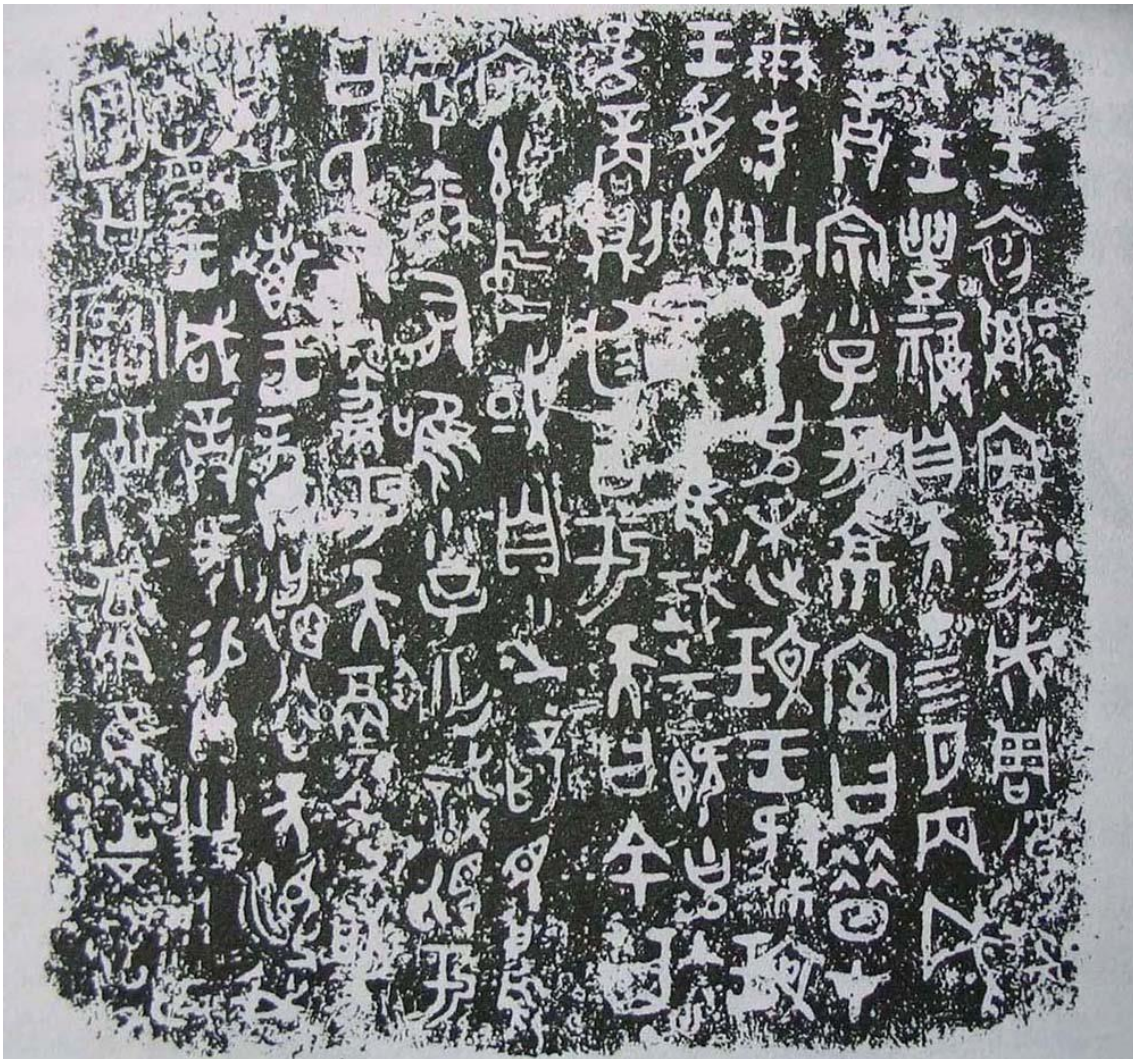 唯王初䙴宅于成周復爯
珷王豊祼自天才四月丙戌
王誥宗小子于京室曰昔才
爾考公氏克逨玟王肆玟
王受茲大令唯珷王既克大
邑商則廷告于天曰余其
宅茲中或自之乂民烏
乎爾有唯小子亡識視于
公氏有爵于天徹令敬
享哉叀王龏德谷天順我
不敏王咸誥何易貝卅朋用乍
𢉩公寶尊彝唯王五祀